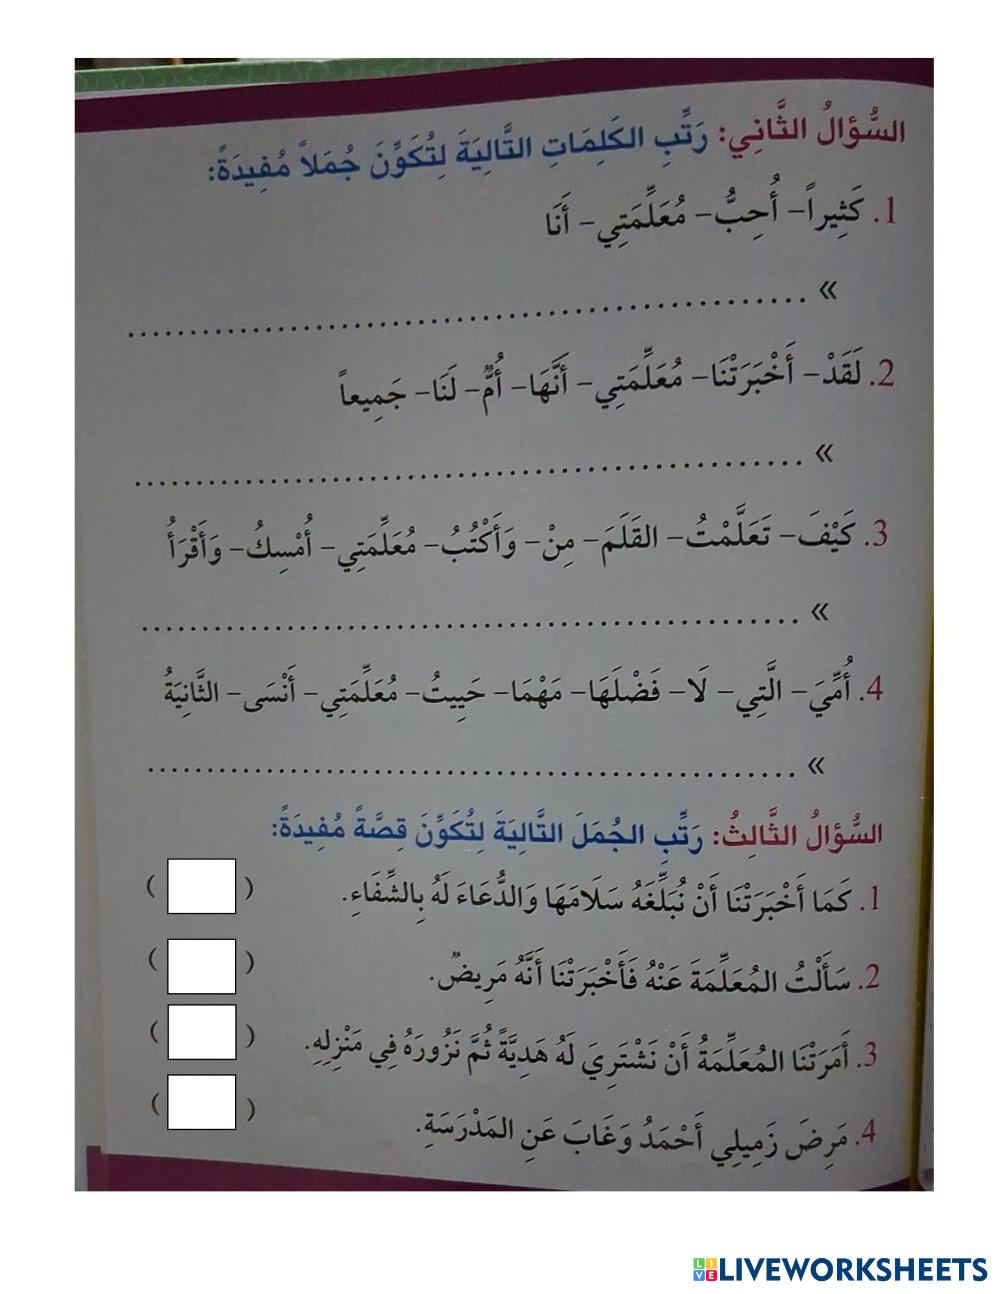 السُّؤالُ الثَّانِي: رَتِّبِ الكَلِمَاتِ التَّالِيَةَ لِتُكَوِّنَ جُمَلاً مُفِيدَةً:
1. كَثِيراً- أُحِبُّ- مُعَلِّمَتِي- أَنَا
» ........................................................
2. لَقَدْ- أَخْبَرَتْنَا- مُعَلِّمَتِي- أَنَّهَا- أُمٌّ- لَنَا- جَمِيعاً
» ........................................................
3. كَيْفَ- تَعَلَّمْتُ- القَلَمَ- مِنْ- وَأَكْتُبُ- مُعَلِّمَتِي- أُمْسِكُ- وَأَقْرَأُ
» ........................................................
4. أُمِّيَ- الَّتِي- لَا- فَضْلَهَا- مَهْمَا- حَيِيتُ- مُعَلِّمَتِي- أَنْسَى- الثَّانِيَةُ
» ........................................................
السُّؤَالُ الثَّالِثُ: رَتِّبِ الجُمَلَ التَّالِيَةَ لِتُكَوِّنَ قِصَّةً مُفِيدَةً:
1. كَمَا أَخْبَرَتْنَا أَنْ نُبَلِّغَهُ سَلَامَهَا وَالدُّعَاءَ لَهُ بِالشِّفَاءِ. ( )
2. سَأَلْتُ المُعَلِّمَةَ عَنْهُ فَأَخْبَرَتْنَا أَنَّهُ مَرِيضٌ. ( )
3. أَمَرَتْنَا المُعَلِّمَةُ أَنْ نَشْتَرِيَ لَهُ هَدِيَّةً ثُمَّ نَزُورَهُ فِي مَنْزِلِهِ. ( )
4. مَرِضَ زَمِيلِي أَحْمَدُ وَغَابَ عَنِ المَدْرَسَةِ. ( )
LIVE LIVEWORKSHEETS